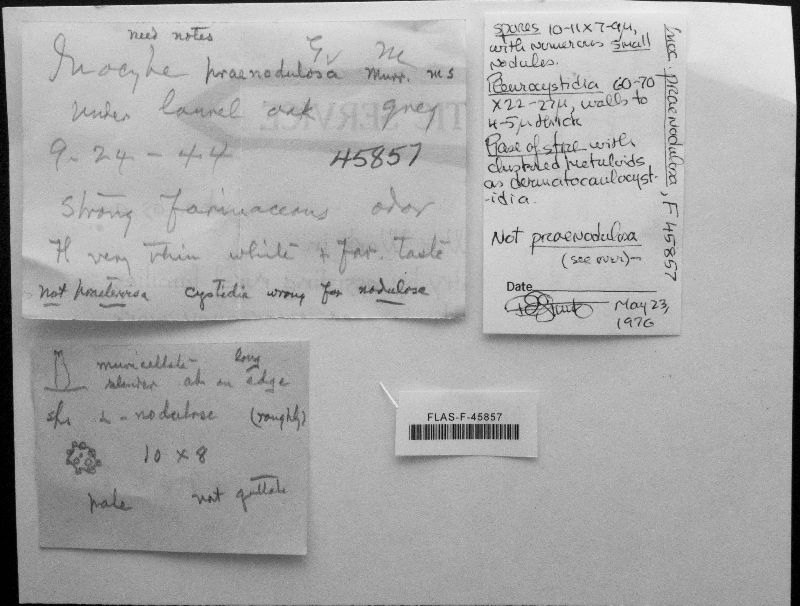 need notes
Gv
Inocybe praenodulosa Murr. ms
Under laurel oak grey
9-24-44 45857
Strong farinaceous odor
Fl very thin white + far. taste
not praetervisa cystidia wrong for nodulose
muricellate long
slender cyl on edge
nodulose (roughly)
10 x 8
pale not guttate
spores 10-11x7-9µ,
with numerous small
nodules.
Pleurocystidia 60-70
x22-27µ, walls to
4-5µ thick
Base of stipe with
clustered metuloids
as dermatocaulocyst-
-idia.
Not praenodulosa
(see over)—
Date
May 23,
1976
Inoc. praenodulosa, F 45857
FLAS-F-45857